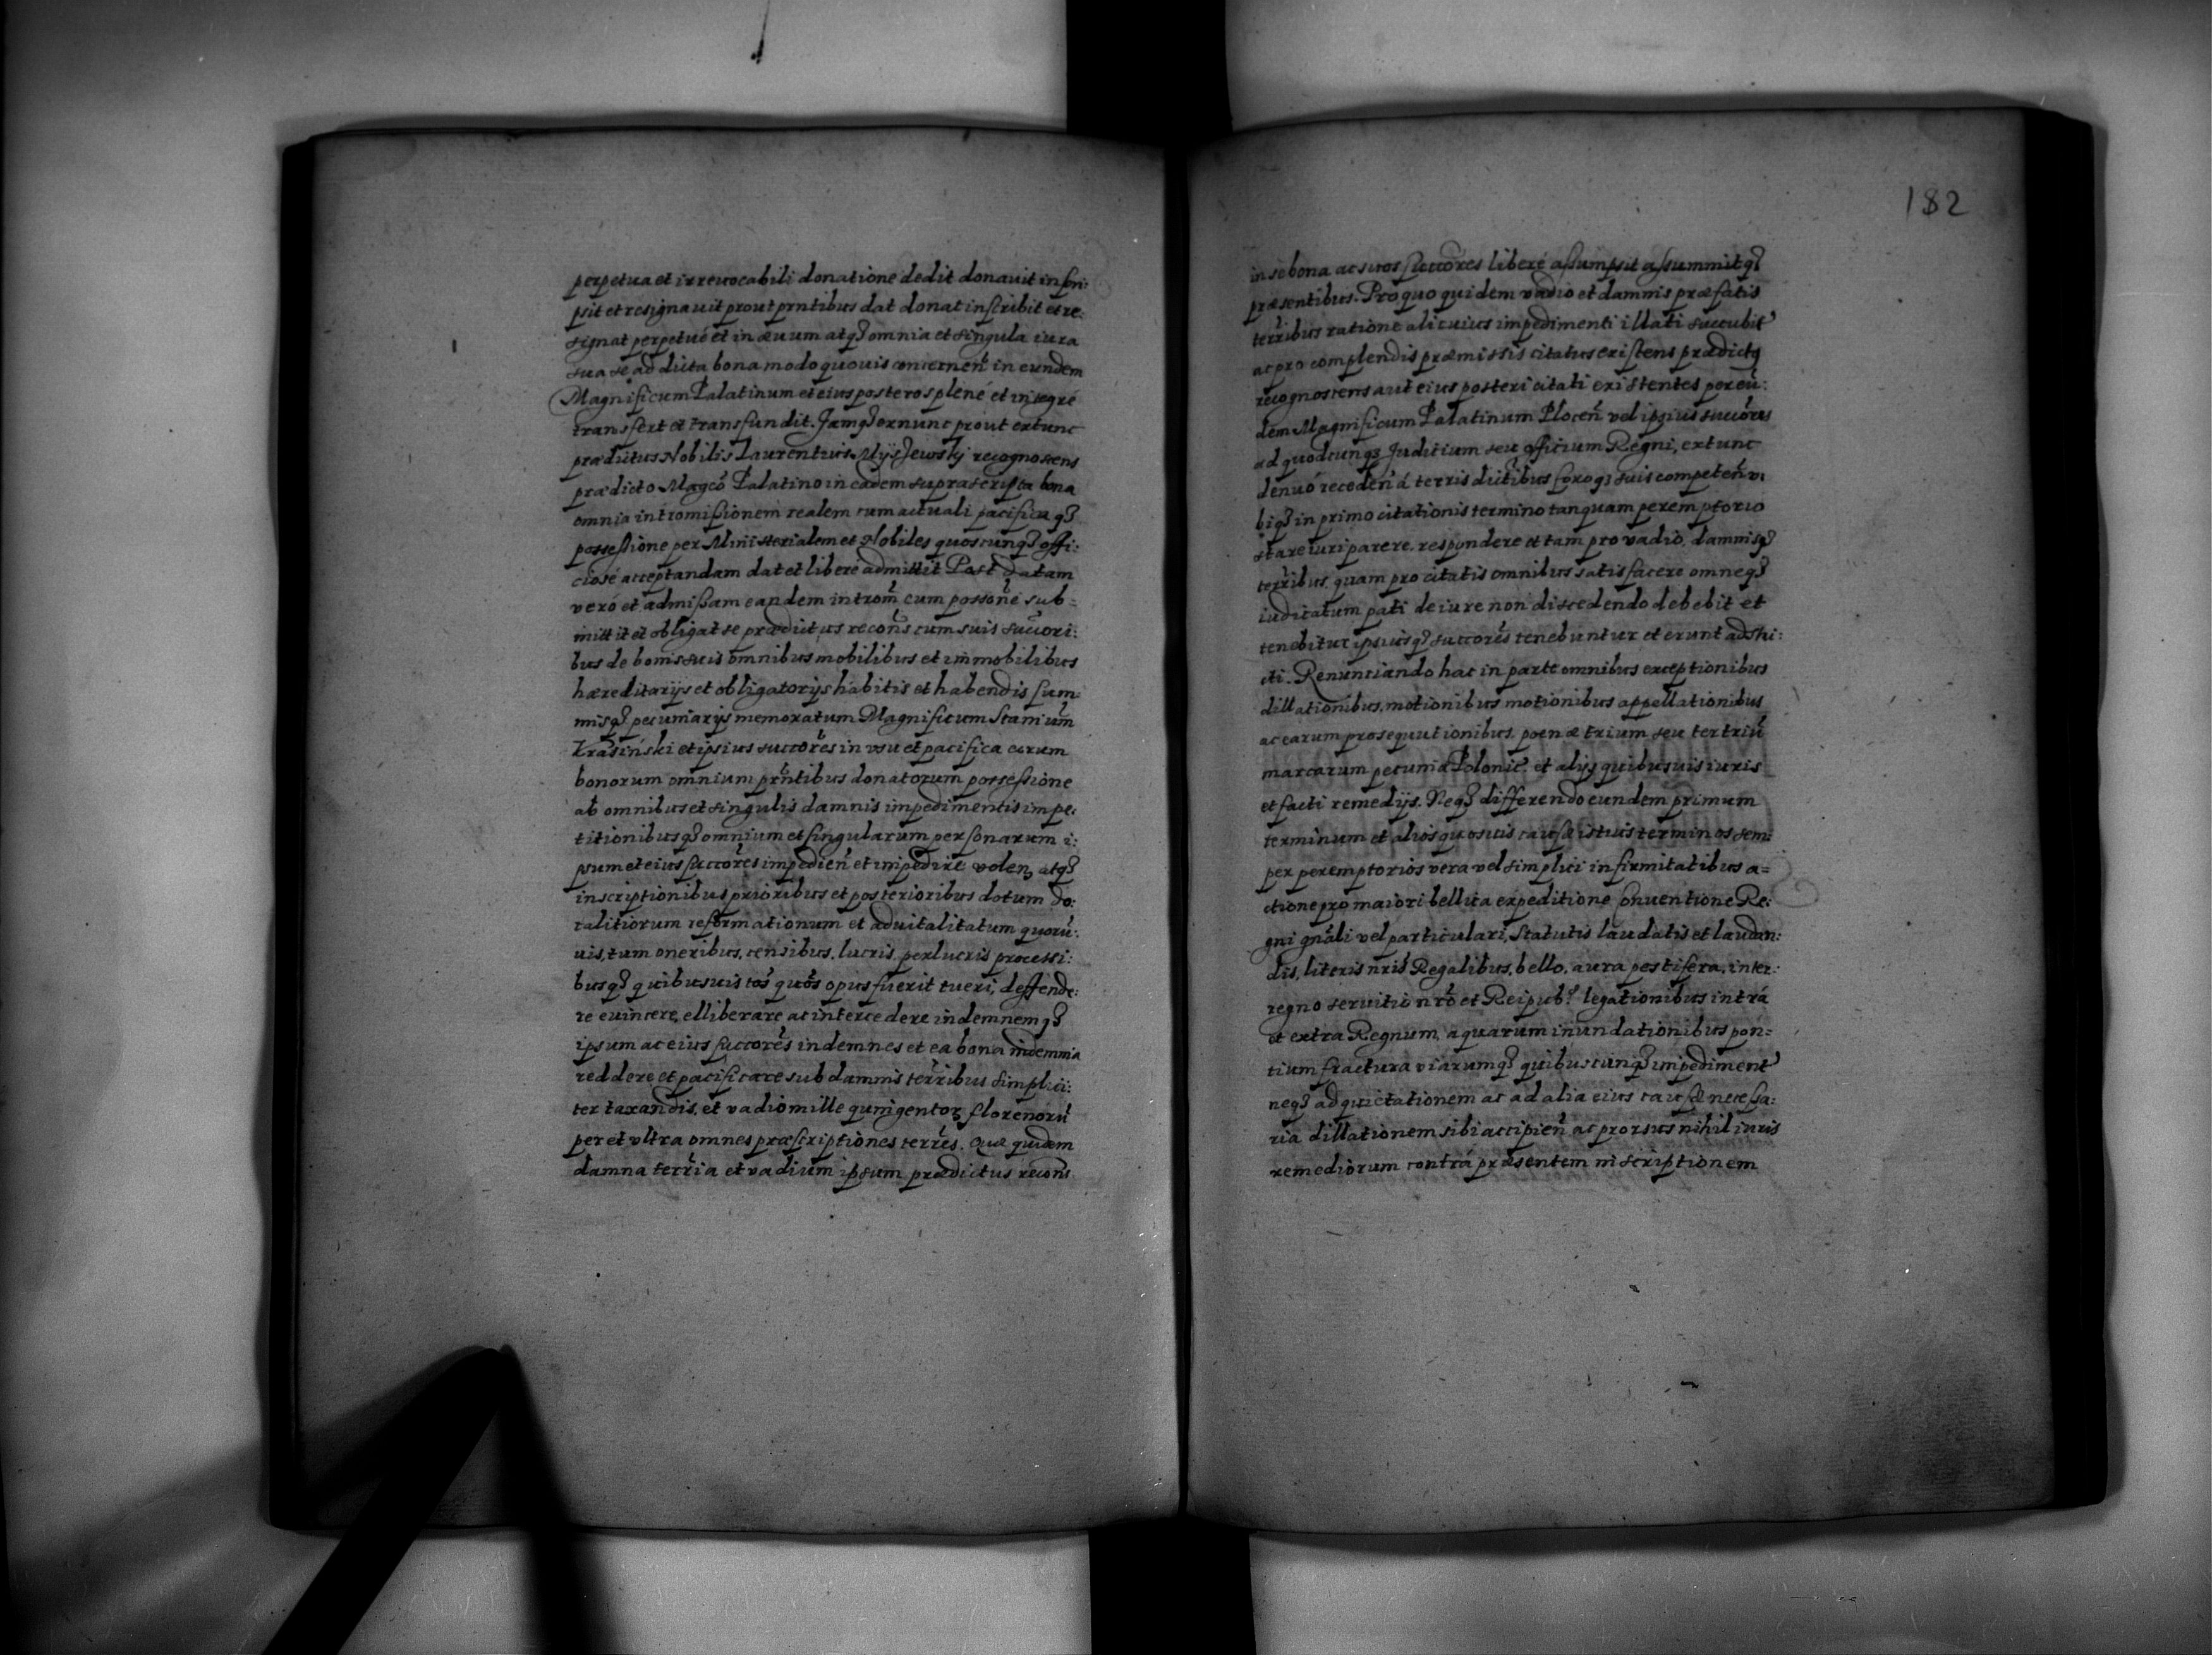 perpetua et irreuocabili donatione dedit donauit inscri:
psit et resignauit prout prntibus dat donat inscribit et re:
signat perpetuó et in æuum atq3 omnia et singula iura
sua se ad dicta bona modo quouis concernen̄ in eundem
Magnificum Palatinum et eius posteros plené et integré
transfert et transfundit. Jamq3 exnunc prout extunc
prædictus Nobilis Laurentius recognoscens
prædicto Magco̅ Palatino in eadem suprascripta bona
omnia intromißionem realem cum actuali pacificaq3
posseßione per Ministerialem et Nobiles quoscunq3 offi:
ciosé acceptandam dat et liberé admittit Post datam
veró et admißam eandem introm̄ cum posson̄e sub=
mittit et obligat se prædictus recon̄s cum suis succ̄ori:
bus de bonis suis omnibus mobilibus et immobilibus
hæreditarijs et obligatorijs habitis et habendis sum:
misq3 pecuniarijs memoratum Magnificum Stanium̄
Krasiński et ipsius succor̄es in vsu et pacifica eorum
bonorum omnium prn̄tibus donatorum poseßione
ab omnibus et singulis damnis impedimentis impe:
titionibusq3 omnium et singularum personarum i:
psum et eius succor̄es impedien̄ et impedire volen, atq3
inscriptionibus prioribus et posterioribus dotum do:
talitiorum reformationum et aduitalitatum quorū:
uis, tum oneribus, censibus, lucris, perlucris processi:
busq3 quibusuis to̅s quo̅s opus fuerit tueri, deffende:
re euincere, elliberare ac intercedere indemnemq3
ipsum ac eius succor̄es indemnes et ea bona indemnia
reddere et pacificare sub damnis terr̄ibus simplici:
ter taxandis, et vadio mille quingentor, florenorū
per et vltra omnes præscriptiones terr̄es. Quæ quidem
damna terr̄ia et vadium ipsum prædictus recons̄
182
in se bona ac suos succor̄es liberé aßumpsit aßummitq3
præsentibus. Pro quo quidem vadio et damnis præfatis
terr̄ibus ratione alicuius impedimenti illati succubit
ac pro complendis præmissis citatus existens prædictq
recognoscens aut eius posteri citati existentes per eū:
dem Magnificum Palatinum Plocen̄ vel ipsius succor̄es
ad quodcunq3 Juditium seu officium Regni, extunc
denuó receden̄ á terris distr̄ibus foroq3 suis competen̄ v,
biq3 in primo citationis termino tanquam peremptorio
stare iuri parere, respondere et tam pro vadio, damnisq3
terr̄ibus, quam pro citatis omnibus satisfacere omneq3
iudicatum pati de iure non discedendo debebit et
tenebitur ipsiusq3 succor̄es tenebuntur et erunt adstri:
cti. Renunciando hac in parte omnibus exceptionibus
dillationibus, motionibus motionibus appellationibus
ac earum prosequutionibus, poenæ trium seu ter triū
marcarum pecuniæ Polonic̄ et alijs quibusuis iuris
et facti remedijs. Neq3 differendo eundem primum
terminum et alios quosuis causæ istius terminos sem:
per peremptorios vera vel simplici infirmitatibus a=
ctione pro maiori bellica expeditione Conuentione Re:
gni gnāli vel particulari, Statutis laudatis et laudan:
dis, literis nris̄ Regalibus, bello, aura pestifera, inter:
regno seruitio nro̅ et Reipub: legationibus intrá
et extra Regnum, aquarum inundationibus pon=
tium fractura viarumq3 quibuscunq3 impediment
neq3 ad quietationem ac ad alia eius causæ neceßa:
ria dillationem sibi accipien̄ ac prorsus nihil iuris
remediorum contrá præsentem inscriptionem